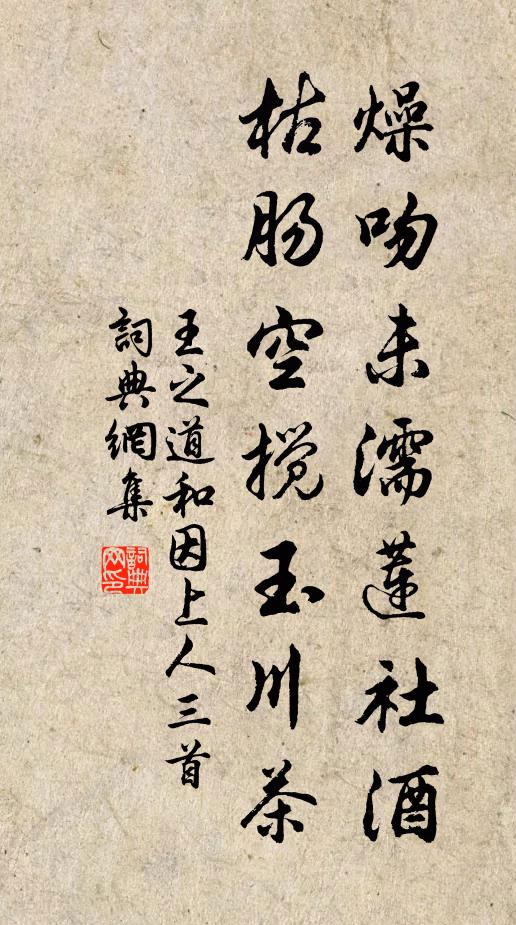 燥吻未濡蓮社酒
枯肠空搅玉川茶
王之道和因上人三首
詞典網集
詞典网印